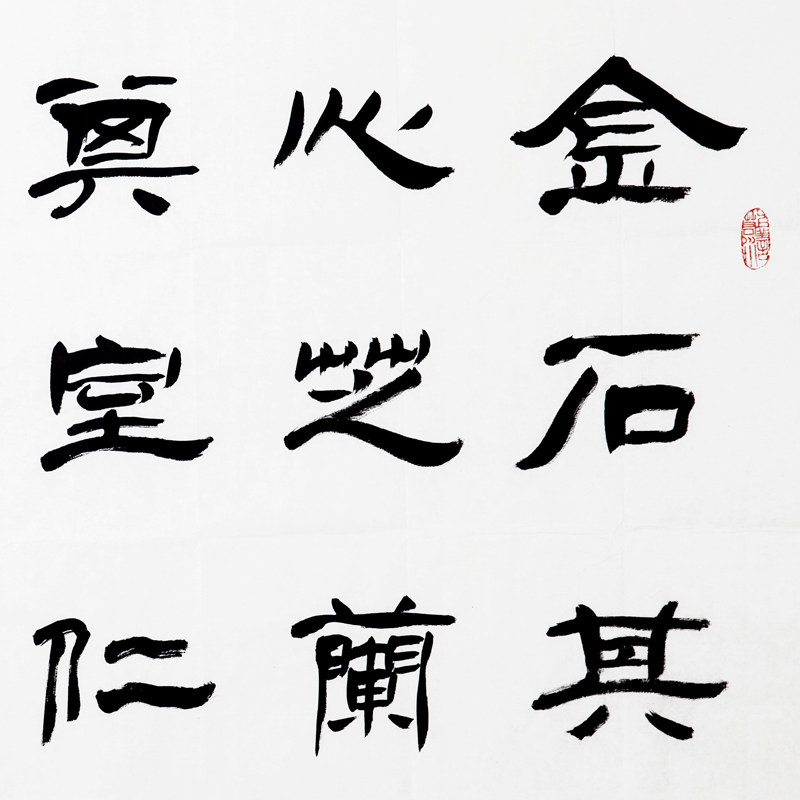 金石其
心芝蘭
其室仁